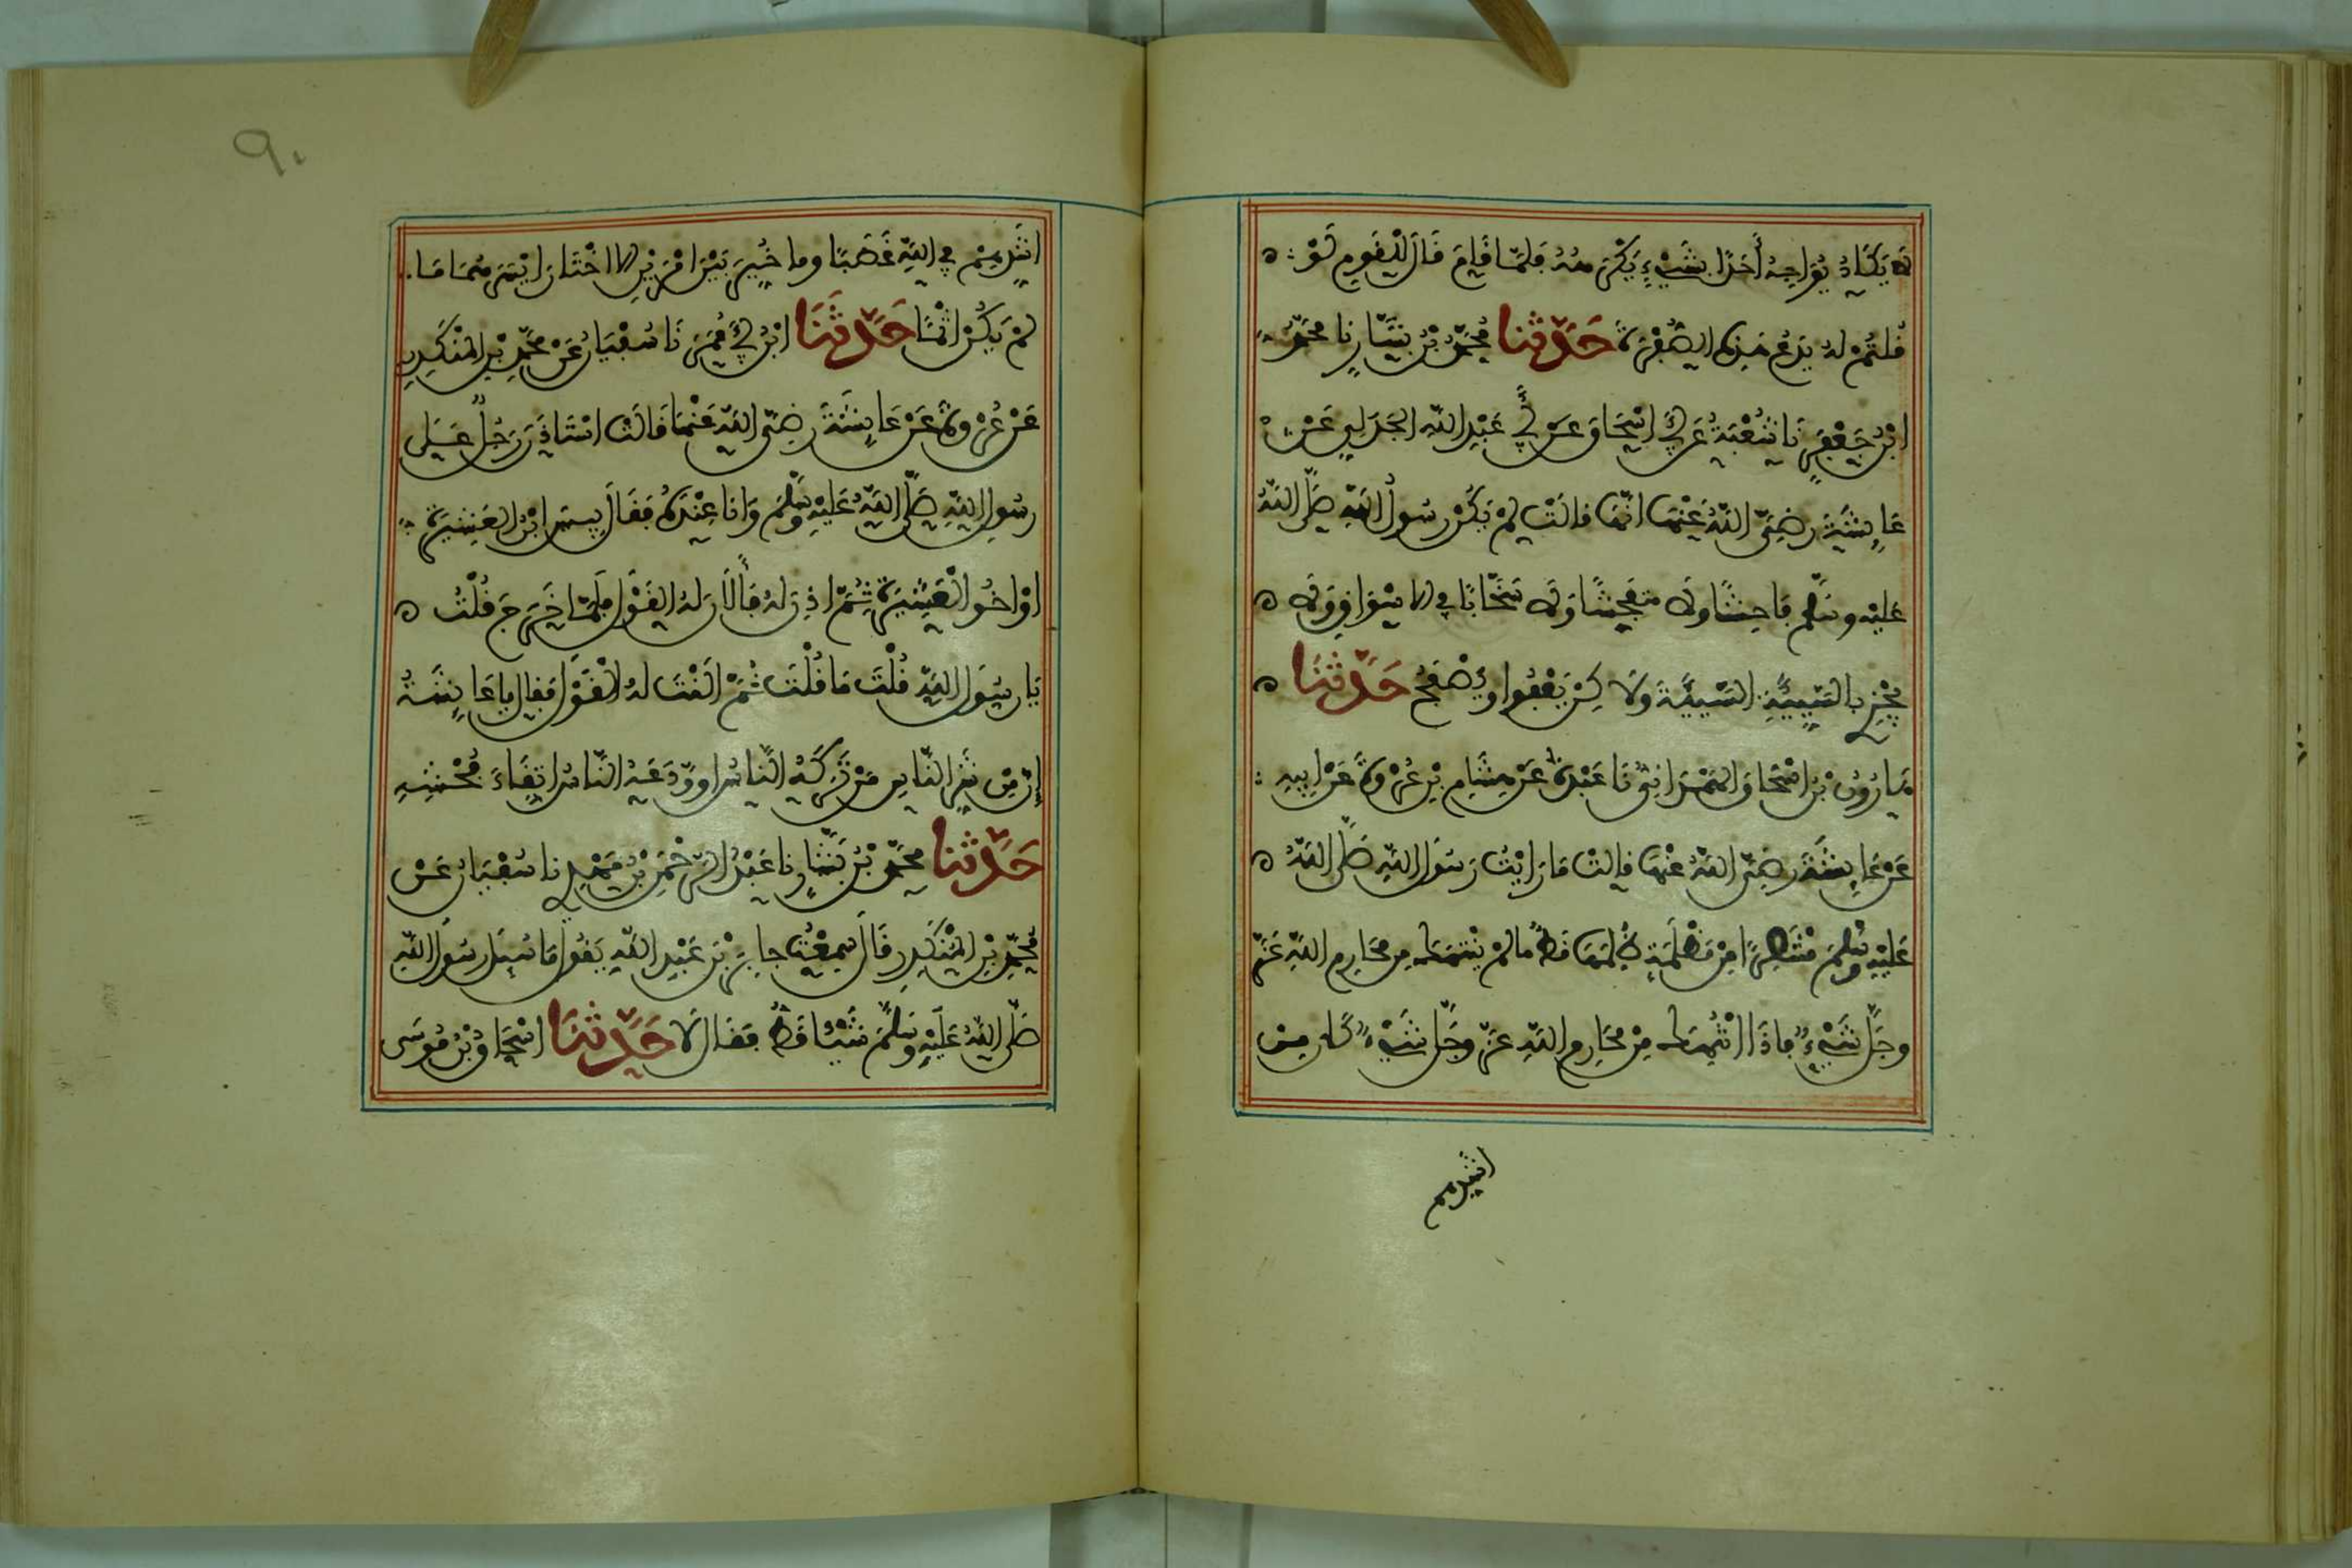 لا يكاد يواجه أحدا بشيء يكرهه فلما قام قال للقوم لو
قلتم له يدع هذه الصفرة حدثنا محمد بن بشار نا محمد
ابن جعفر نا شعبة عن أبي اسحاق عن أبي عبد الله الجدلي عن
عايشة رضي الله عنها انها قالت لم يكن رسول الله صلى الله
عليه وسلم فاحشا ولا متفحشا ولا سخابا في الاسواق ولا
يجزي بالسيئة السيئة ولاكن يعفوا ويصفح حدثنا
هارون بن اسحاق الهمداني نا عبدة عن هشام بن عروة عن ابيه
عن عايشة رضي الله عنها قالت ما رايت رسول الله صلى الله
عليه وسلم منتصرا من مظلمة ظلمها قط ما لم ينتهك من محارم الله عز
وجل شيء فاذا انتهك من محارم الله عز وجل شيء كان من
اشدهم
اشدهم في الله غضبا وما خير بين امرين الا اختار ايسرهما ما
لم يكن اثما حدثنا ابن أبي عمر نا سفيان عن محمد بن المنكدر
عن عروة عن عايشة رضي الله عنها قالت استاذن رجل على
رسول الله صلى الله عليه وسلم وانا عنده فقال بيس ابن العشيرة
او اخو العشيرة ثم اذن له فألان له القول فلما خرج قلت
يا رسول الله قلت ما قلت ثم النت له القول فقال يا عايشة
إن من شر الناس من تركه الناس او ودعه الناس اتقاء فحشه
حدثنا محمد بن بشار نا عبد الرحمن بن مهدي نا سفيان عن
محمد بن المنكدر قال سمعت جابر بن عبد الله يقول ما سئل رسول الله
صلى الله عليه وسلم شيئا قط فقال لا حدثنا اسحاق بن موسى
٩٠